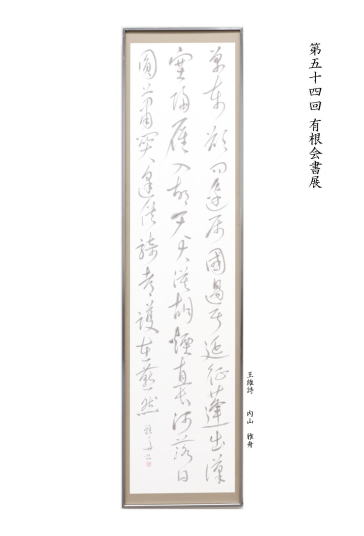 第五十四回 有根会書展
王維詩 内山 雅舟
單車欲問邊屬國過居延征蓬出漢
塞歸雁入胡天大漠孤煙直長河落日
圓蕭關逢候騎都護在燕然